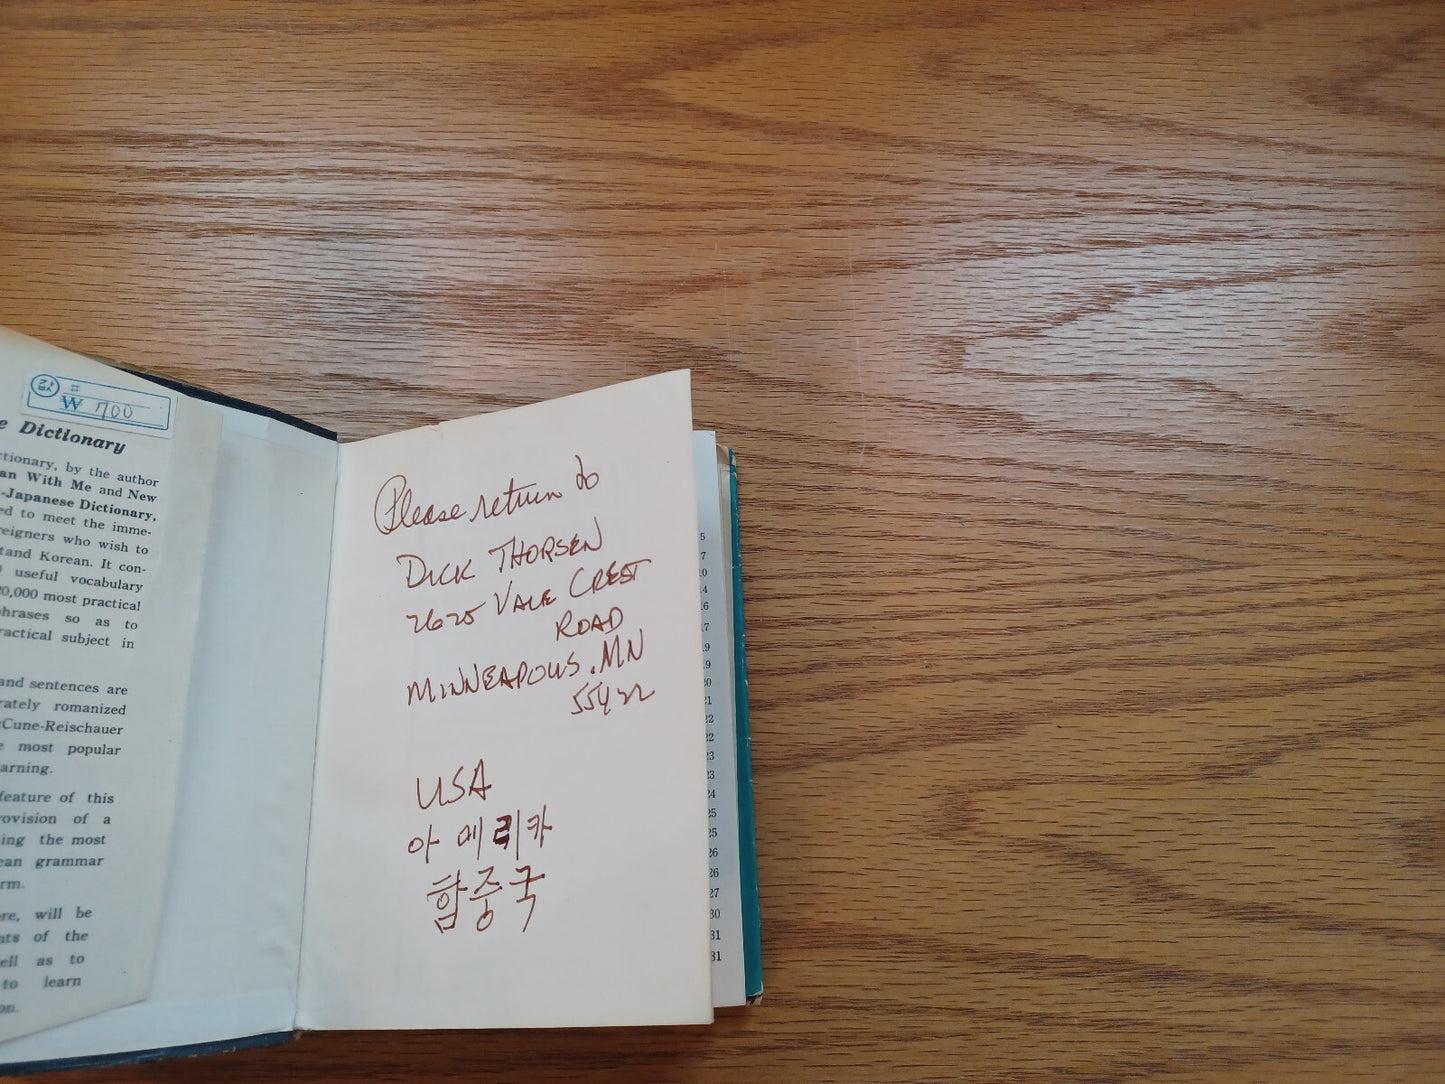 값 # ₩ 700
e Dictionary
ctionary, by the author
an With Me and New
-Japanese Dictionary,
ed to meet the imme-
reigners who wish to
tand Korean. It con-
useful vocabulary
0,000 most practical
phrases so as to
ractical subject in
and sentences are
rately romanized
Cune-Reischauer
e most popular
arning.
feature of this
rovision of a
ing the most
ean grammar
rm.
re, will be
nts of the
ell as to
to learn
on.
Please return to
DICK THORSEN
2625 VALE CREST
ROAD
MINNEAPOLIS, MN
55422
USA
아메리카
합중국
5
7
10
14
16
17
19
19
20
21
22
22
23
23
24
25
25
26
26
27
30
31
31